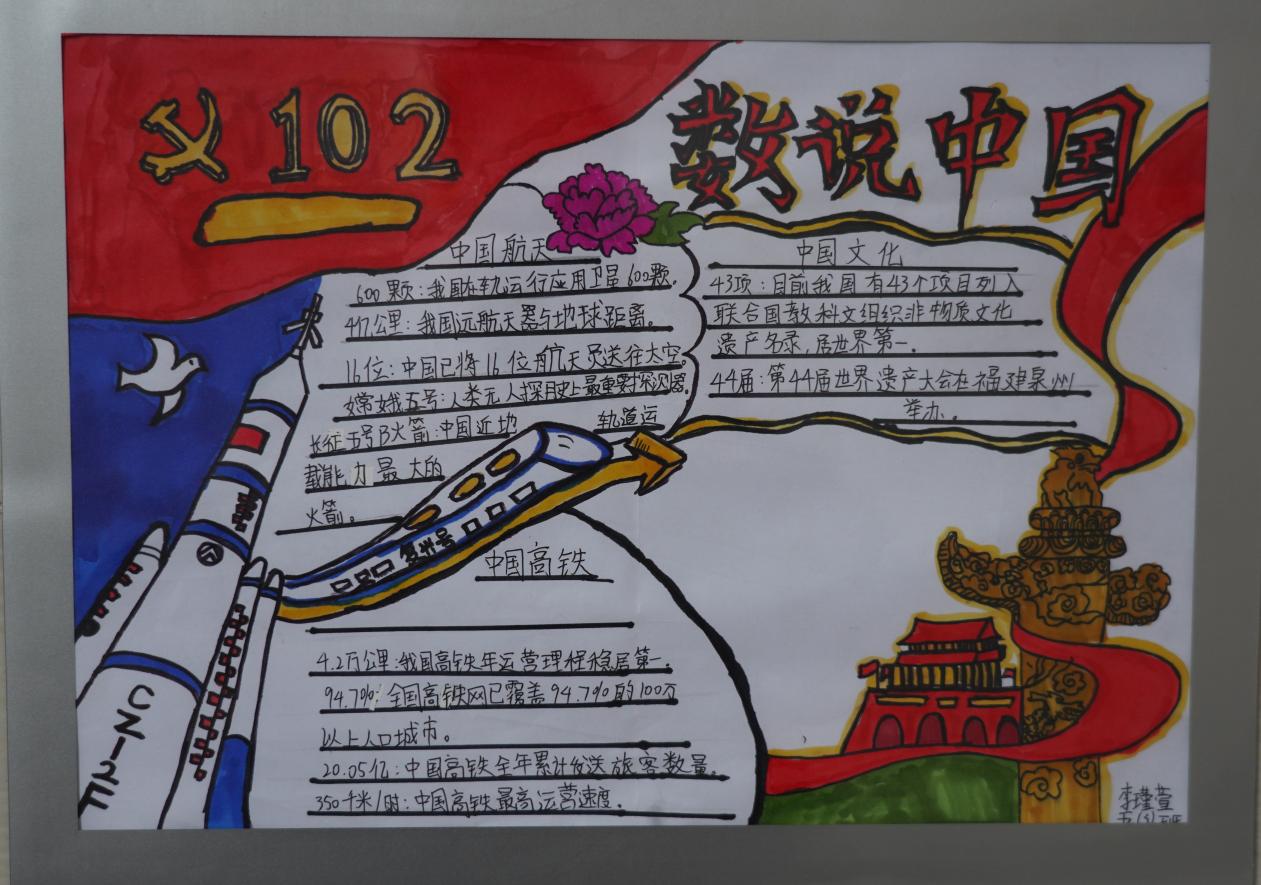 102
数说中国
中国航天
600颗：我国在轨运行应用卫星600颗。
4亿公里：我国远航天器与地球距离。
16位：中国已将16位航天员送往太空。
嫦娥五号：人类无人探月史上最重要探测器。
长征五号B火箭：中国近地 轨道运
载能力最大的
火箭。
中国文化
43项：目前我国有43个项目列入
联合国教科文组织非物质文化
遗产名录，居世界第一。
44届：第44届世界遗产大会在福建泉州
举办。
复兴号
中国高铁
4.2万公里：我国高铁年运营理程稳居第一。
94.7%：全国高铁网已覆盖94.7%的100万
以上人口城市。
20.05亿：中国高铁全年累计发送旅客数量。
350千米/时：中国高铁最高运营速度。
CZ-12F
李瑾萱
五(3)班